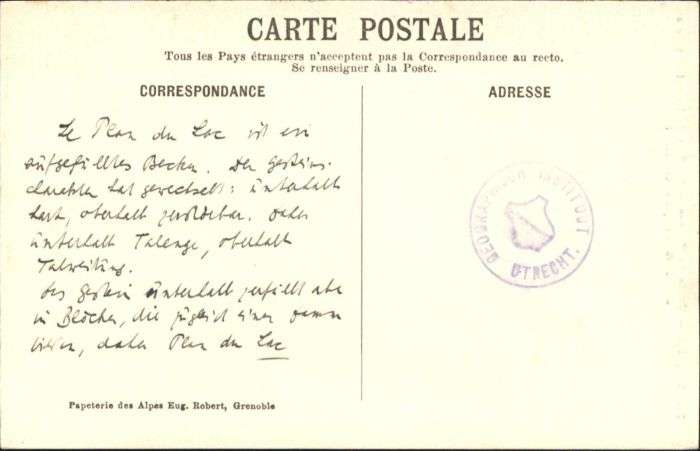 CARTE POSTALE
Tous les Pays étrangers n'acceptent pas la Correspondance au recto.
Se renseigner à la Poste.
CORRESPONDANCE
ADRESSE
Le Plan du Lac ist ein
aufgefülltes Becken. Der Gesteins-
charakter hat gewechselt: unterhalb
hart, oberhalb zerstörbar. Daher
unterhalb Talenge, oberhalb
Talweitung.
Das Gestein unterhalb zerfällt aber
in Blöcke, die zugleich einen Damm
bilden, daher Plan du Lac
GEOGRAPHISCH INSTITUUT
UTRECHT.
Papeterie des Alpes Eug. Robert, Grenoble